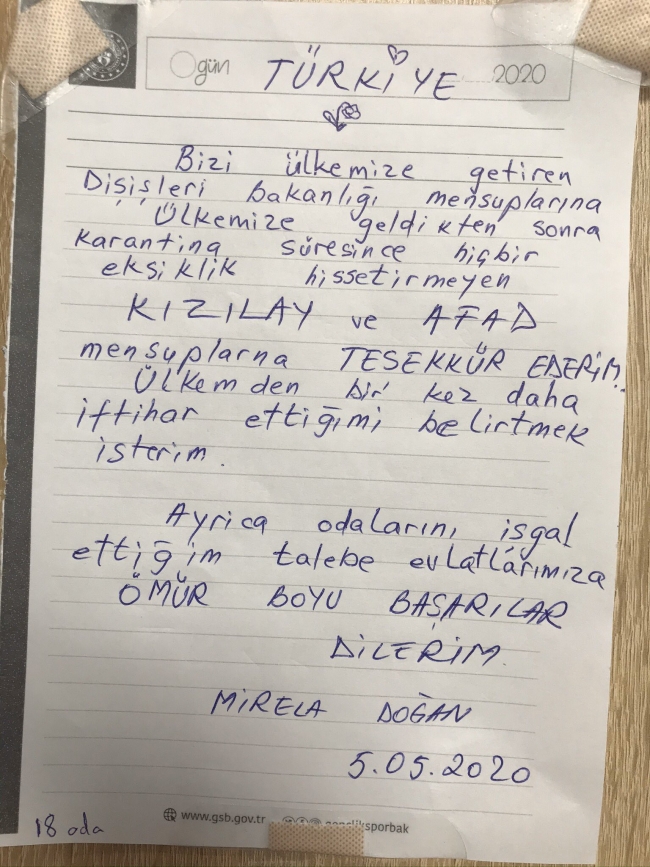 gün TÜRKİYE 2020
Bizi ülkemize getiren
Dişişleri bakanlığı mensuplarına
Ülkemize geldikten sonra
karantina süresince hiçbir
eksiklik hissetirmeyen
KIZILAY ve AFAD
mensuplarna TESEKKÜR EDERİM.
Ülkemden bir kez daha
iftihar ettiğimi belirtmek
isterim.
Ayrica odalarını işgal
ettiğim talebe evlatlarımıza
ÖMÜR BOYU BAŞARILAR
DİLERİM.
MİRELA DOĞAN
5.05.2020
www.gsb.gov.tr gençliksporbak
18 oda